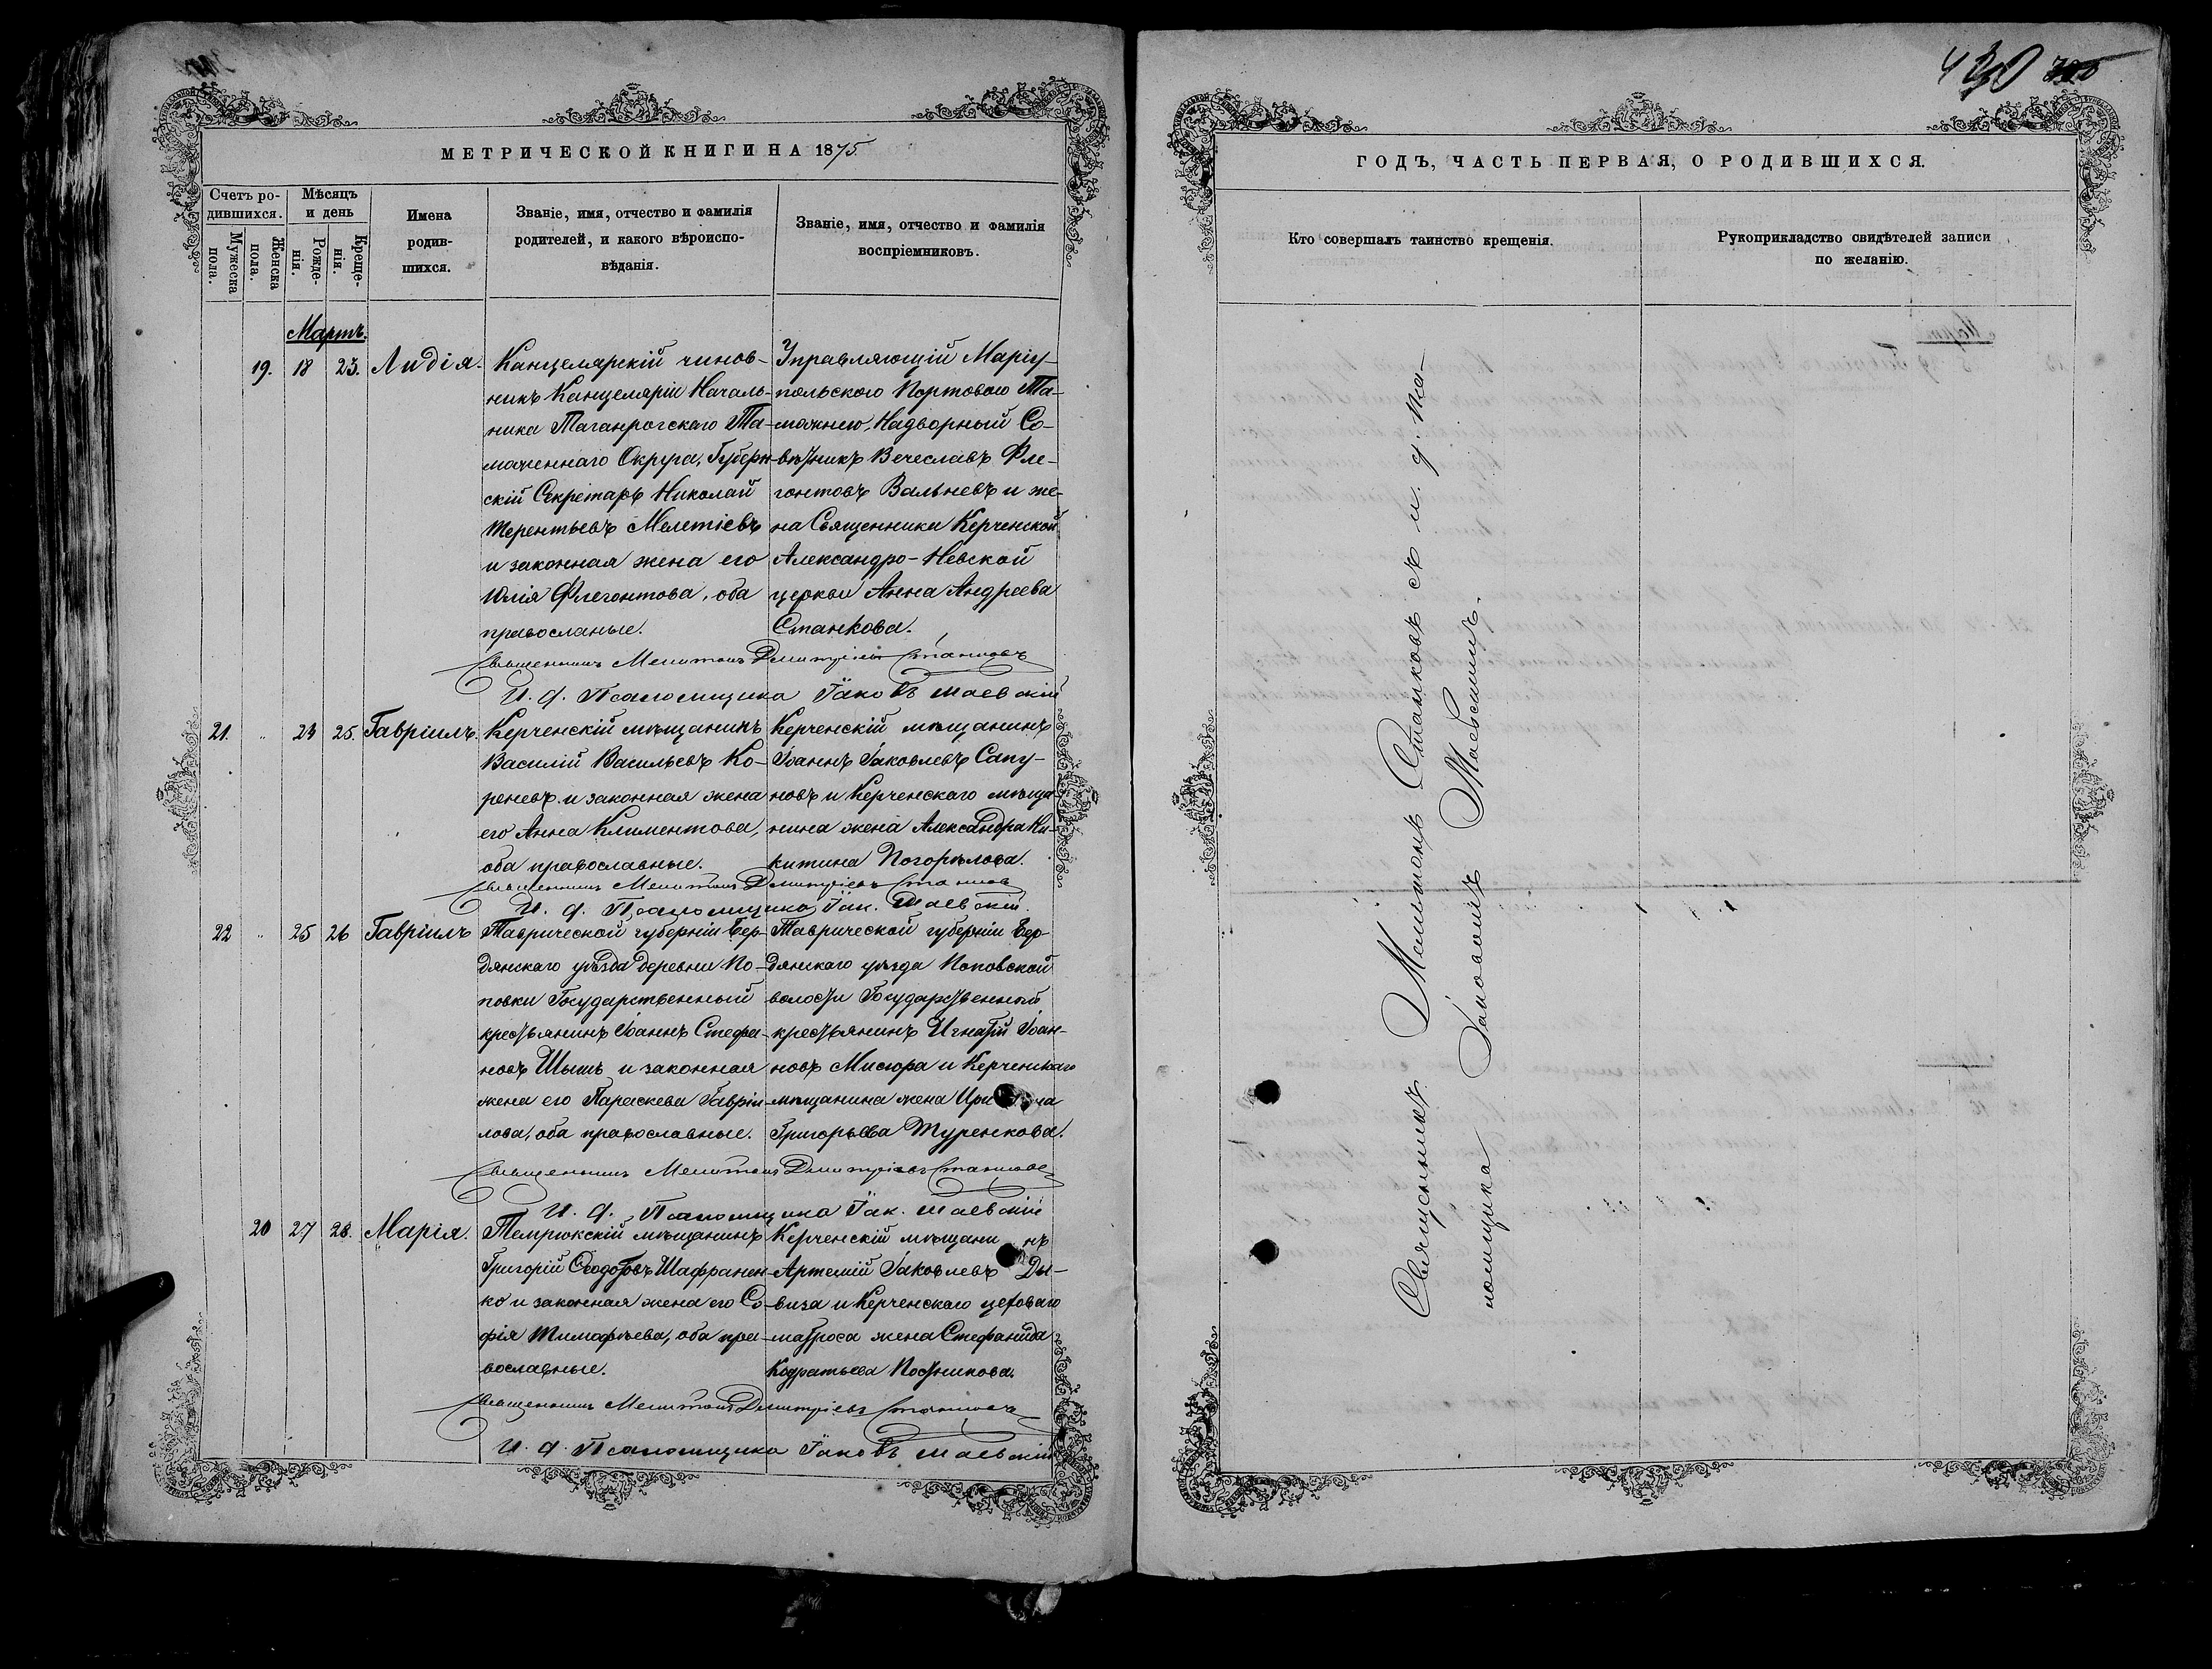 430
МЕТРИЧЕСКОЙ КНИГИ НА 1875
Счетъ ро-
дившихся.
Мужеска
пола.
Женска
пола.
Мѣсяцъ
и день
Рожде-
нія.
Креще-
нія.
Имена
родив-
шихся.
Званіе, имя, отчество и фамилія
родителей, и какого вѣроиспо-
вѣданія.
Званіе, имя, отчество и фамилія
воспріемниковъ.
Мартъ.
19. 18 23. Лидія.
Канцелярскій чинов-
никъ Канцеляріи Началь-
ника Таганрогскаго Та-
моженнаго Округа, Губерн-
скій Секретарь Николай
Терентьевъ Мелетіевъ
и законная жена его
Юлія Флегонтова, оба
правосланые.
Управляющій Маріу-
польскою Портовою Та-
можнею, Надворный Со-
вѣтникъ Вечеславъ Фле-
гонтовъ Вальневъ и же-
на Священника Керченской
Александро-Невской
церкви Анна Андреева
Станкова.
Священникъ Мелитонъ Димитріевъ Станковъ
И. д. Псаломщика Іаковъ Маевскій
21. " 23 25. Гавріилъ.
Керченскій мѣщанинъ
Василій Васильевъ Ко-
реневъ и законная жена
его Анна Климентова,
оба православные.
Керченскій мѣщанинъ
Іоаннъ Іаковлевъ Сапу-
новъ и Керченскаго мѣща-
нина жена Александра Ни-
китина Погорѣлова.
Священникъ Мелитонъ Димитріевъ Станковъ
И. д. Псаломщика Іак. Маевскій.
22 " 25 26 Гавріилъ
Таврической губерніи Бер-
дянскаго уѣзда деревни По-
повки Государственный
крестьянинъ Іоаннъ Стефа-
новъ Шышь и законная
жена его Параскева Гавріи-
лова, оба православные.
Таврической губерніи Бер-
дянскаго уѣзда Поповской
волости Государственный
крестьянинъ Игнатій Іоан-
новъ Мисюра и Керченскаго
мѣщанина жена
Григорьева Туренкова.
Священникъ Мелитонъ Димитріевъ Станковъ
И. д. Псаломщика Іак. Маевскій
20 27 28. Марія.
Темрюкскій мѣщанинъ
Григорій Ѳеодотовъ Шафранен-
ко и законная жена его Со-
фія Тимофѣева, оба пра-
вославные.
Керченскій мѣщанинъ
Артемій Іаковлевъ Ды-
виза и Керченскаго цеховаго
матроса жена Стефанида
Кодратьева Постникова.
Священникъ Мелитонъ Димитріевъ Станковъ
И. д. Псаломщика Іаковъ Маевскій
ГОДЪ, ЧАСТЬ ПЕРВАЯ, О РОДИВШИХСЯ.
Кто совершалъ таинство крещенія.
Рукоприкладство свидѣтелей записи
по желанію.
Священникъ Мелитонъ Станковъ съ и. д. пса-
ломщика Іаковомъ Маевскимъ.